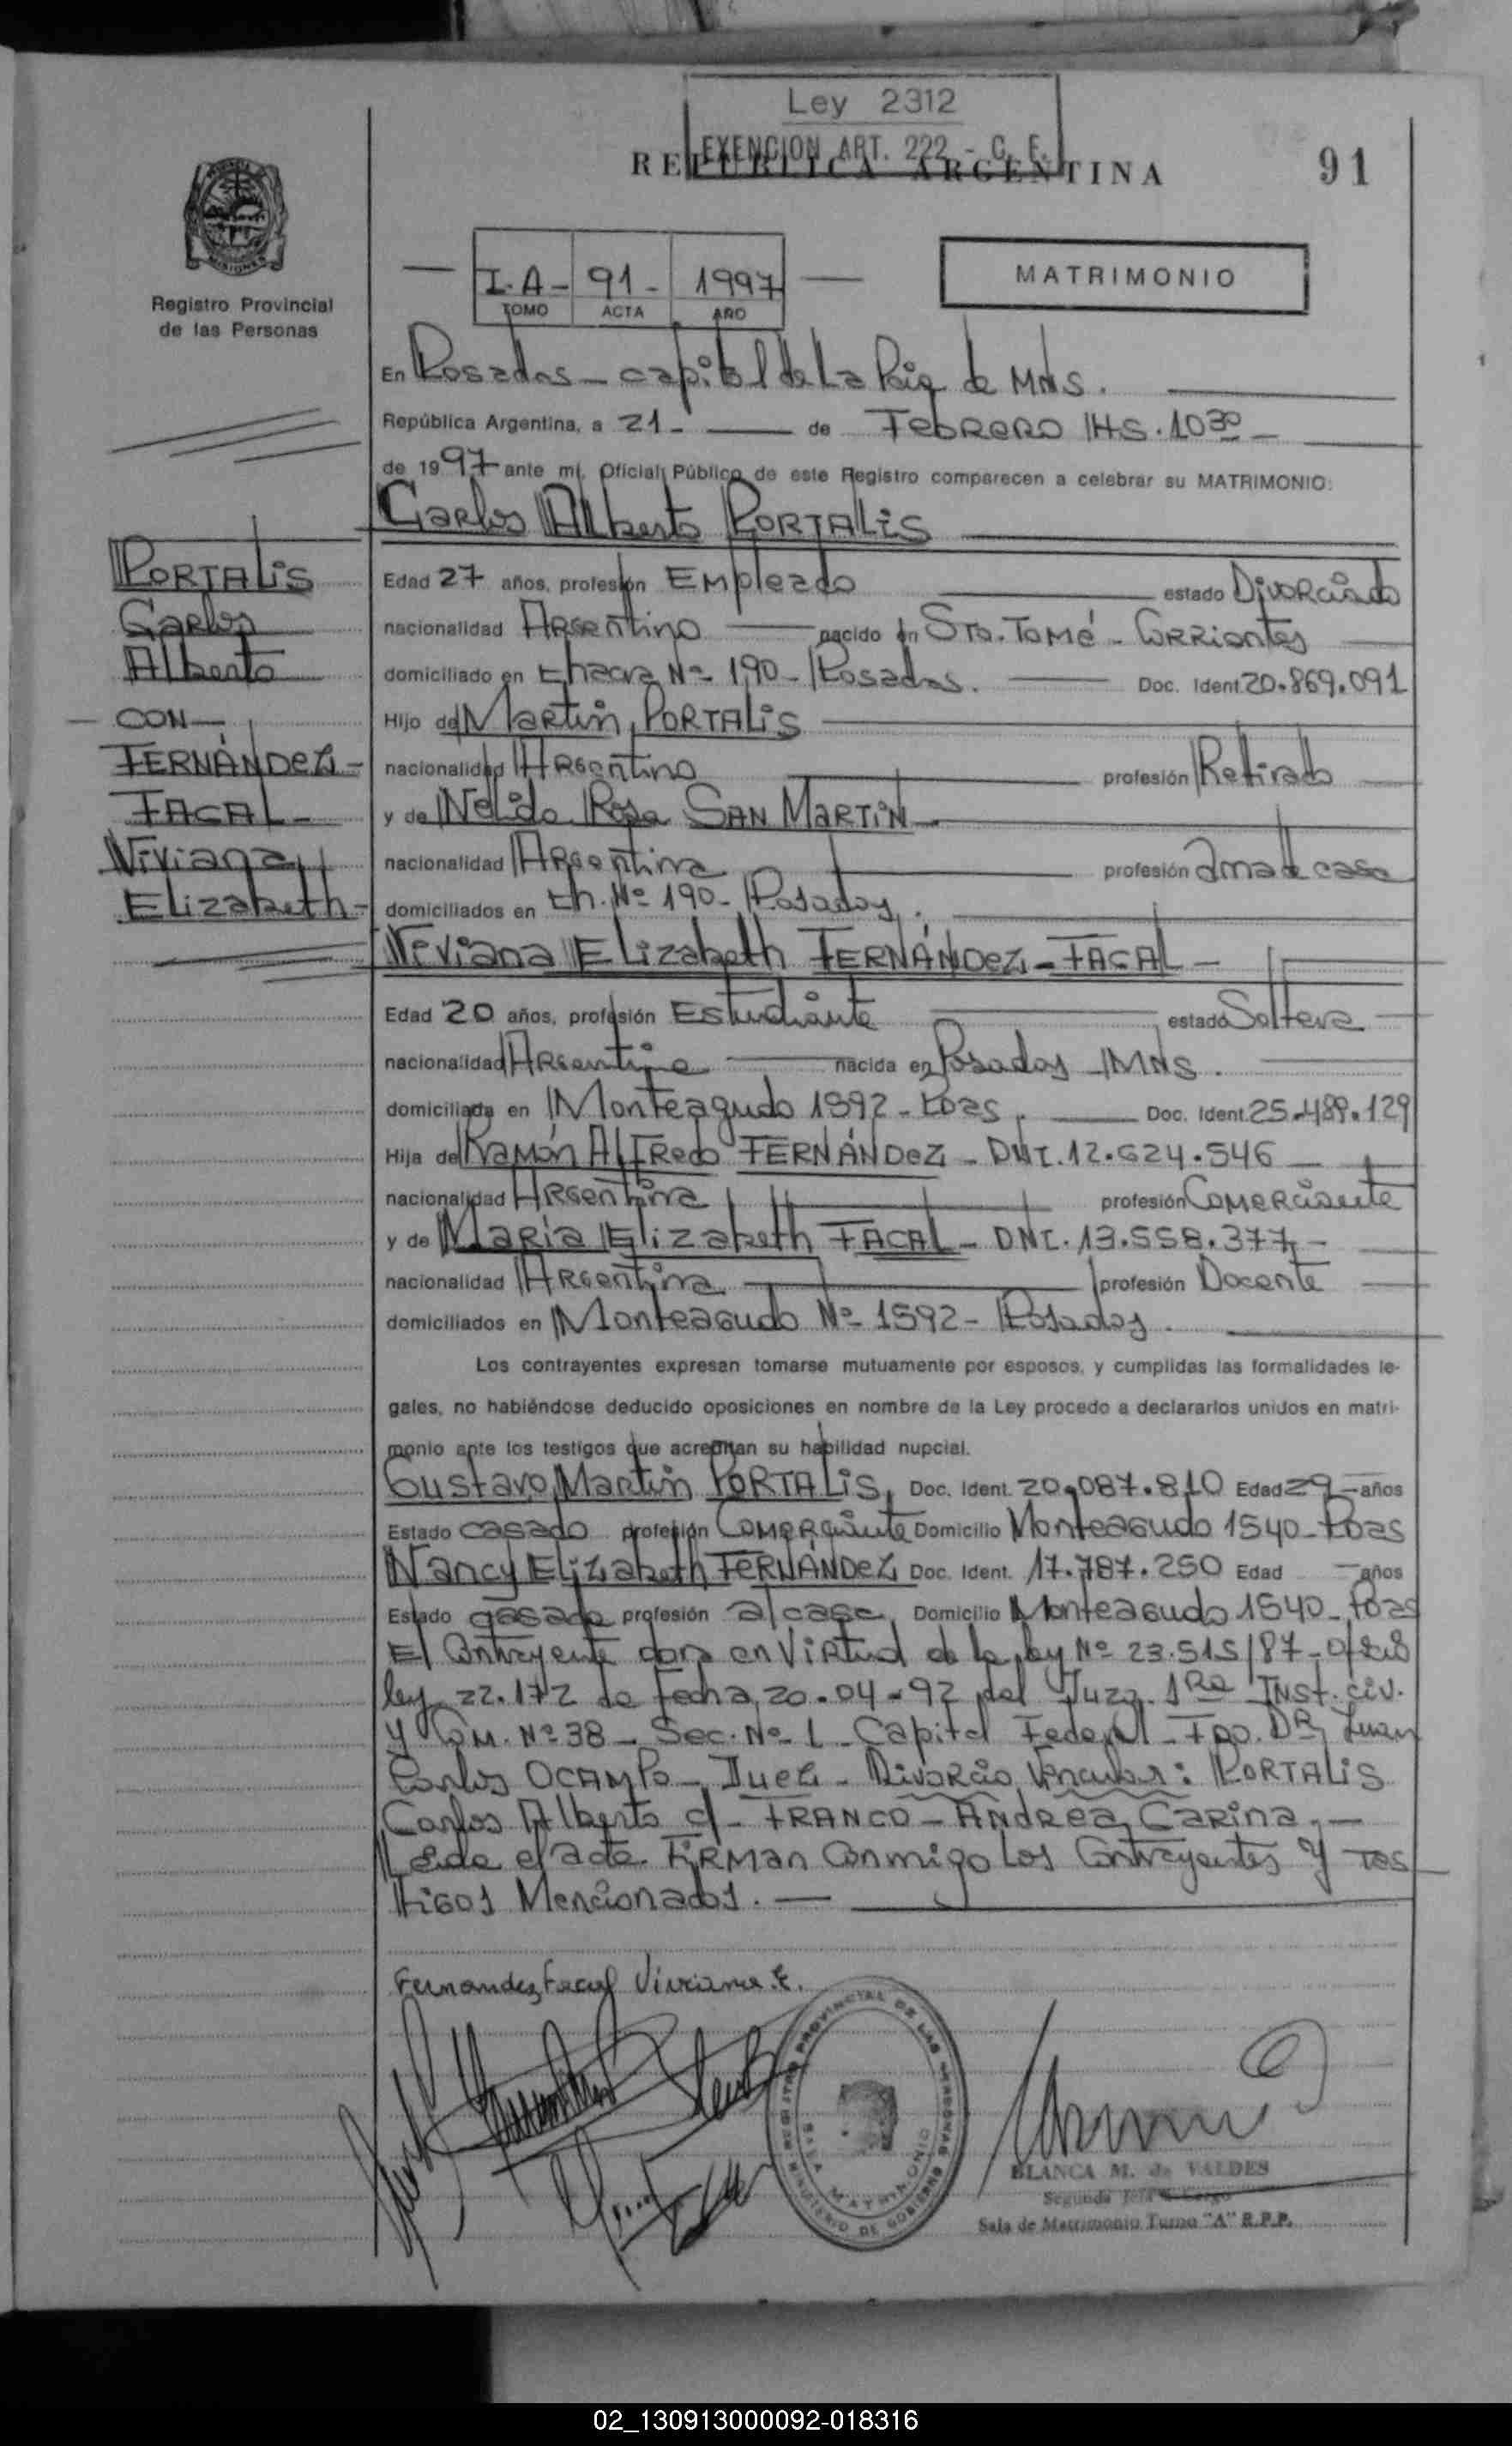 Ley 2312
EXENCION ART. 222 - C. F.
REPUBLICA ARGENTINA
91
MISIONES
Registro Provincial
de las Personas
I-A- 91- 1997
TOMO ACTA AÑO
MATRIMONIO
En Posadas - capital de La Pcia de MNS.
República Argentina, a 21- de FEBRERO HS. 10 30 -
de 1997 ante mí, Oficial Público de este Registro comparecen a celebrar su MATRIMONIO:
Carlos Alberto PORTALIS
PORTALIS
Carlos
Alberto
- CON -
FERNÁNDEZ -
FACAL -
Viviana
Elizabeth -
Edad 27 años, profesión Empleado estado Divorciado
nacionalidad Argentino nacido en Sto. Tomé - Corrientes
domiciliado en Chacra Nº 190 - Posadas. Doc. Ident. 20.869.091
Hijo de Martin PORTALIS
nacionalidad Argentino profesión Retirado
y de Nelida Rosa SAN MARTIN -
nacionalidad Argentina profesión Ama de casa
domiciliados en Ch. Nº 190 - Posadas.
Viviana Elizabeth FERNÁNDEZ - FACAL -
Edad 20 años, profesión Estudiante estado Soltera
nacionalidad Argentina nacida en Posadas MNS.
domiciliada en Monteagudo 1592 - Pdas. Doc. Ident. 25.489.129
Hija de Ramón Alfredo FERNÁNDEZ - DNI. 12.624.546 -
nacionalidad Argentina profesión Comerciante
y de María Elizabeth FACAL - DNI. 13.558.377 -
nacionalidad Argentina profesión Docente
domiciliados en Monteagudo Nº 1592 - Posadas.
Los contrayentes expresan tomarse mutuamente por esposos, y cumplidas las formalidades le-
gales, no habiéndose deducido oposiciones en nombre de la Ley procedo a declararlos unidos en matri-
monio ante los testigos que acreditan su habilidad nupcial.
Gustavo Martin PORTALIS, Doc. Ident. 20.087.810 Edad 29 - años
Estado casado profesión Comerciante Domicilio Monteagudo 1540 - Pdas
Nancy Elizabeth FERNÁNDEZ Doc. Ident. 17.787.250 Edad - años
Estado casada profesión a/casa Domicilio Monteagudo 1540 - Pdas
El Contrayente en Virtud de la ley Nº 23.515/87 -
ley 22.172 de fecha 20-04-92 del Juzg. 1Ra INST. civ.
y Com. Nº 38 - Sec. Nº 1 - Capital Federal - FDO. DR. Juan
Carlos OCAMPO - Juez - Divorcio Vincular: PORTALIS
Carlos Alberto c/ - FRANCO - Andrea Carina. -
Leida el acta FIRMAN conmigo los contrayentes y TES
tigos Mencionados. -
Fernandez Facal Viviana E.
REGISTRO PROVINCIAL DE LAS PERSONAS
MINISTERIO DE GOBIERNO
SALA MATRIMONIO
BLANCA M. de VALDES
Segunda Jefa
Sala de Matrimonio Turno "A" R.P.P.
02_130913000092-018316